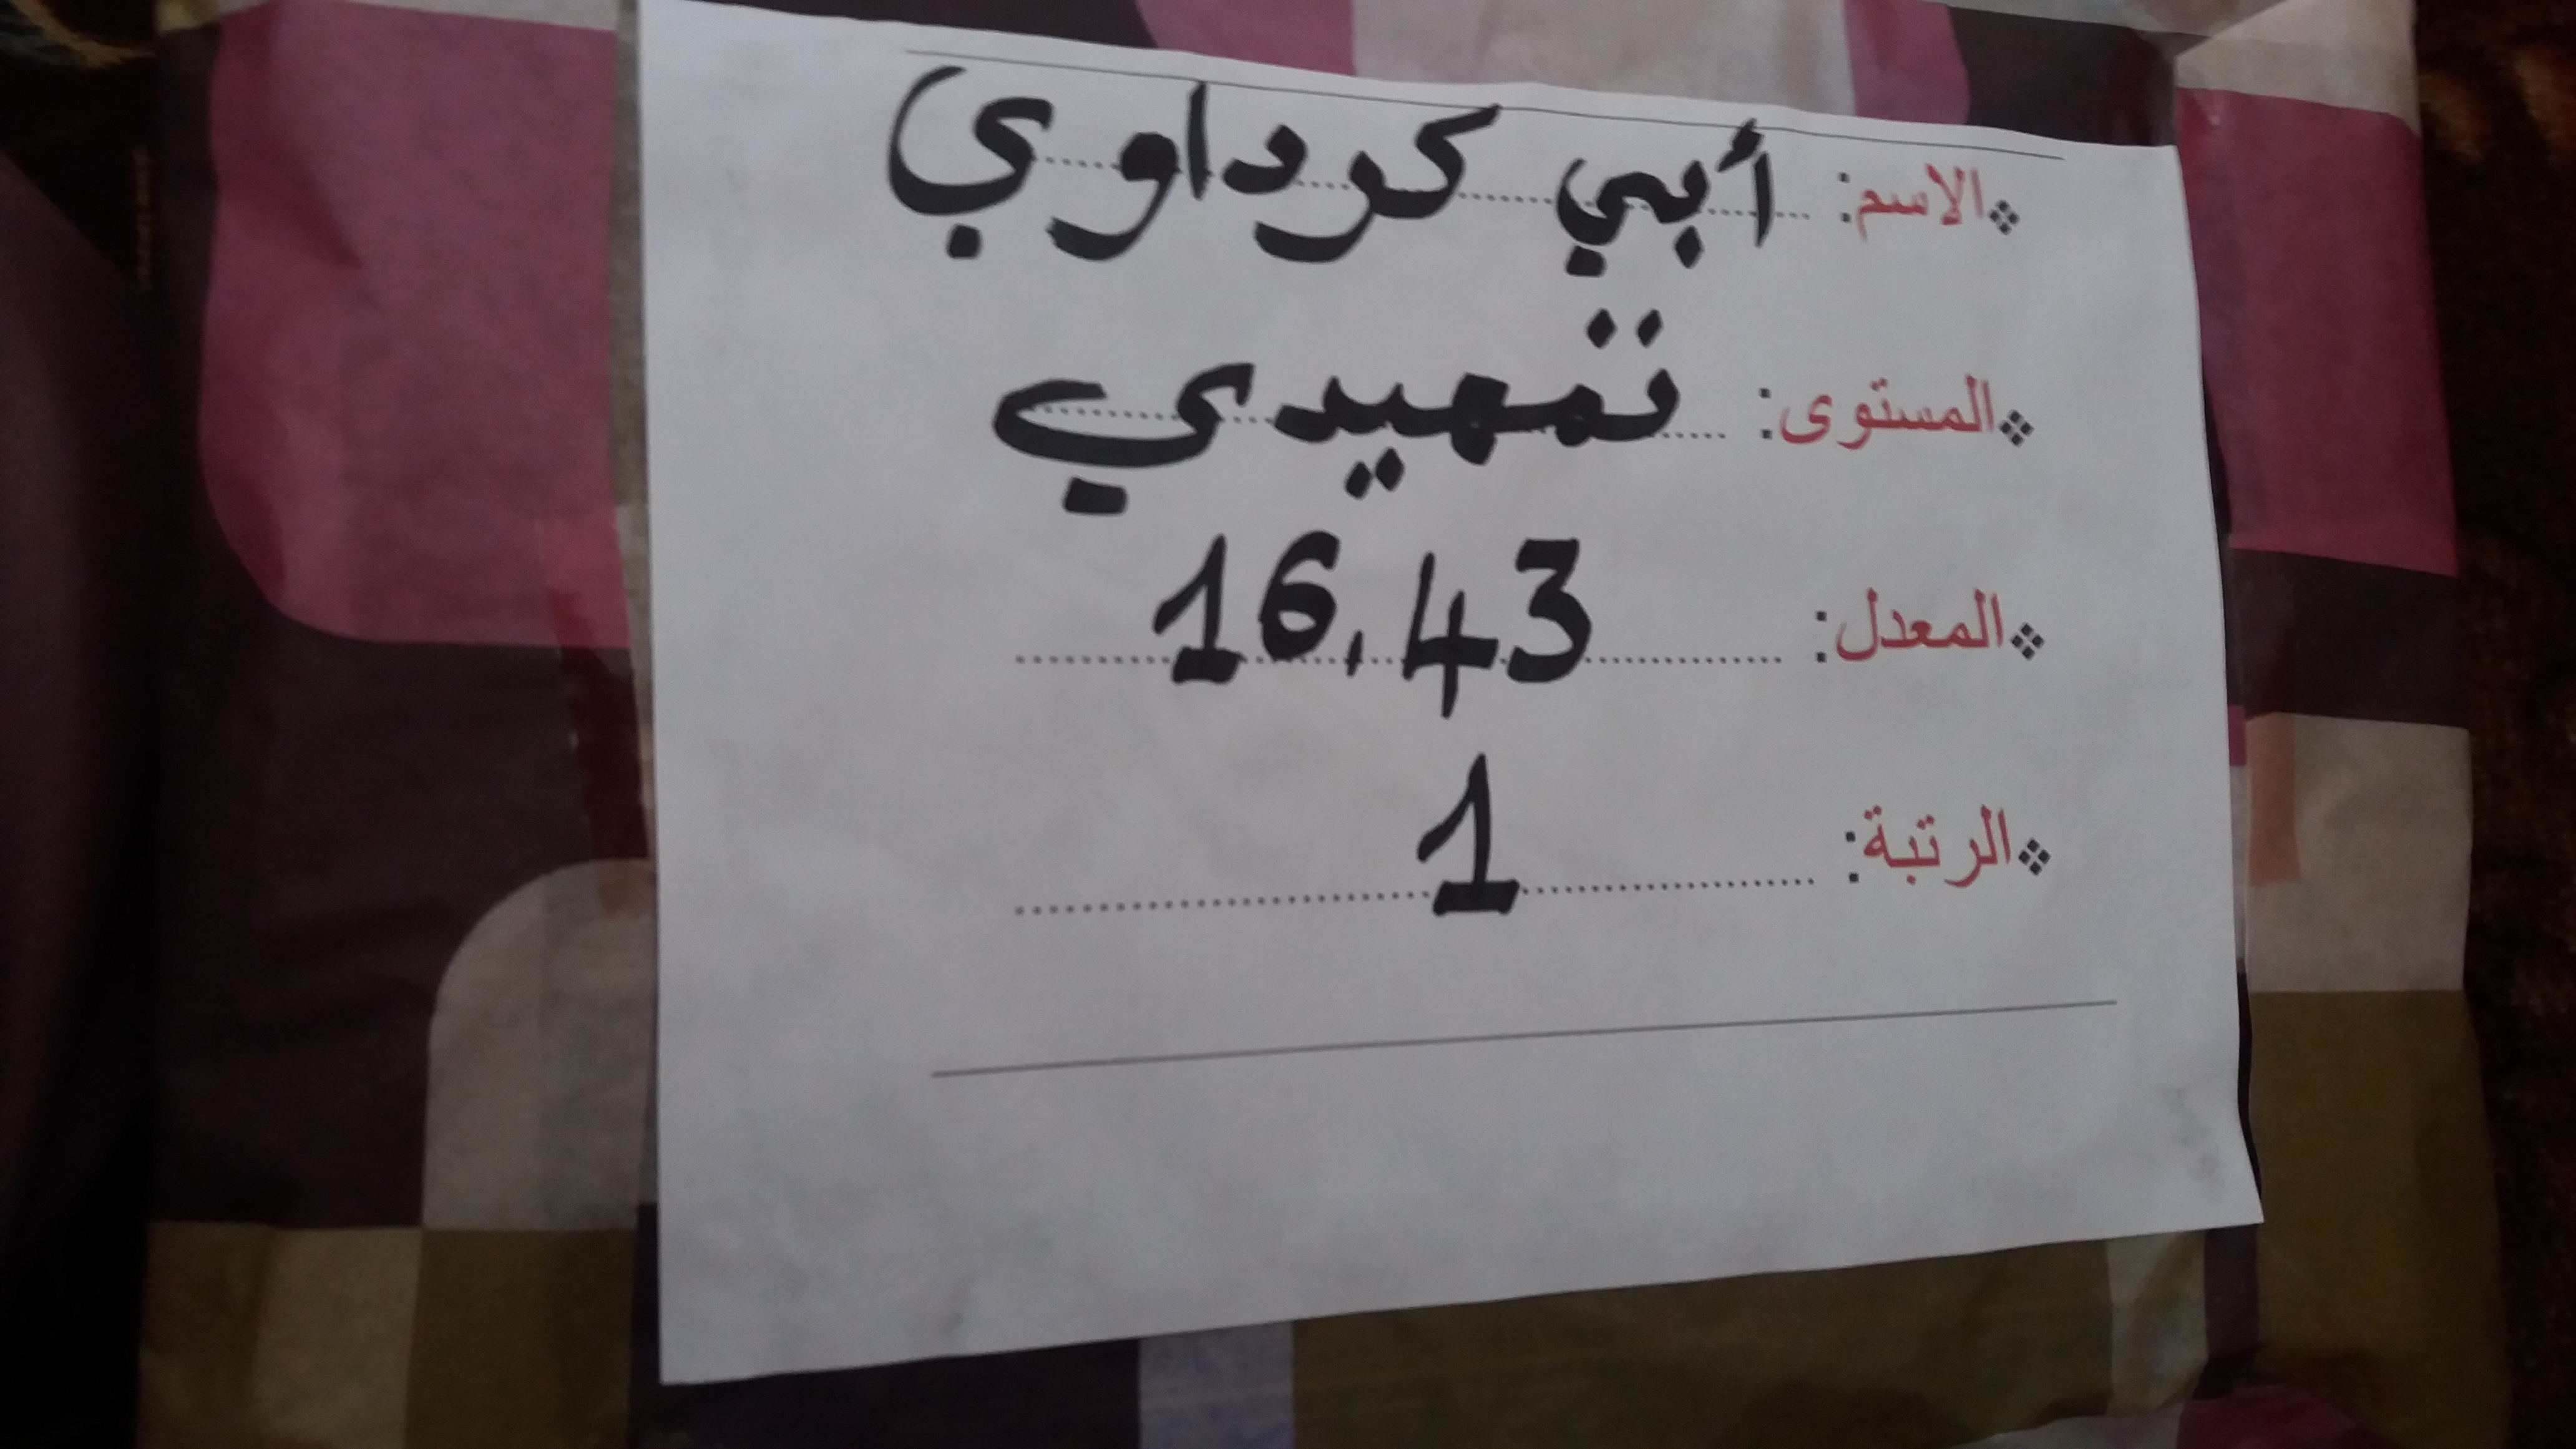 ❖الاسم: أبي كرداوي
❖المستوى: تمهيدي
❖المعدل: 16,43
❖الرتبة: 1